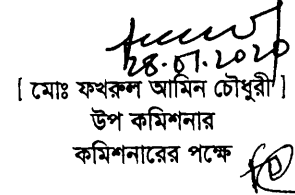 28.01.2020
[ মোঃ ফখরুল আমিন চৌধুরী ]
উপ কমিশনার
কমিশনারের পক্ষে